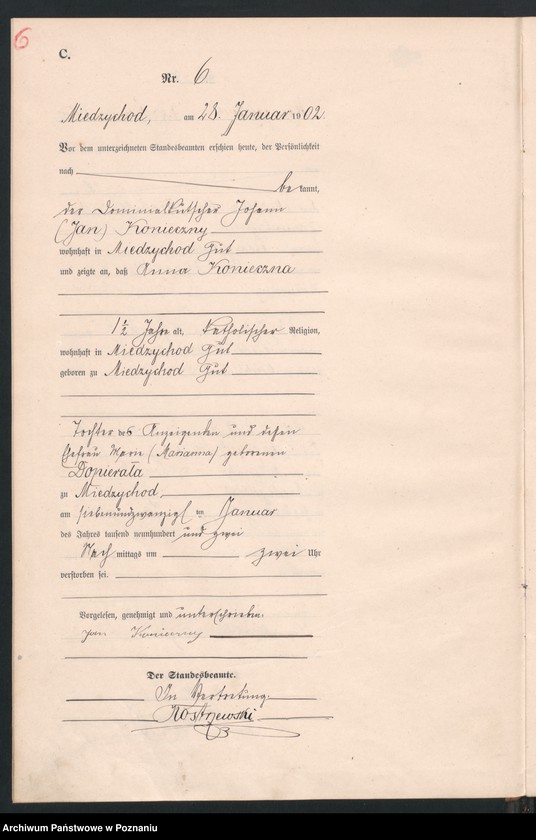 6
C.
Nr. 6.
Miedzychod, am 28. Januar 1902.
Vor dem unterzeichneten Standesbeamten erschien heute, der Persönlichkeit
nach
bekannt,
der Dominialkutscher Johann
(Jan) Konieczny
wohnhaft in Miedzychod Gut
und zeigte an, daß Anna Konieczna
1 1/2 Jahre alt, katholischer Religion,
wohnhaft in Miedzychod Gut
geboren zu Miedzychod Gut
Tochter des Anzeigenden und dessen
Ehefrau Marie (Marianna) geborenen
Dopierala
zu Miedzychod,
am siebenundzwanzigsten Januar
des Jahres tausend neunhundert und zwei
Nachmittags um zwei Uhr
verstorben sei.
Vorgelesen, genehmigt und unterschrieben.
Jan Konieczny
Der Standesbeamte.
In Vertretung.
Kostrzewski
Archiwum Państwowe w Poznaniu